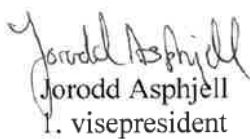 Jorodd Asphjell
Jorodd Asphjell
1. visepresident